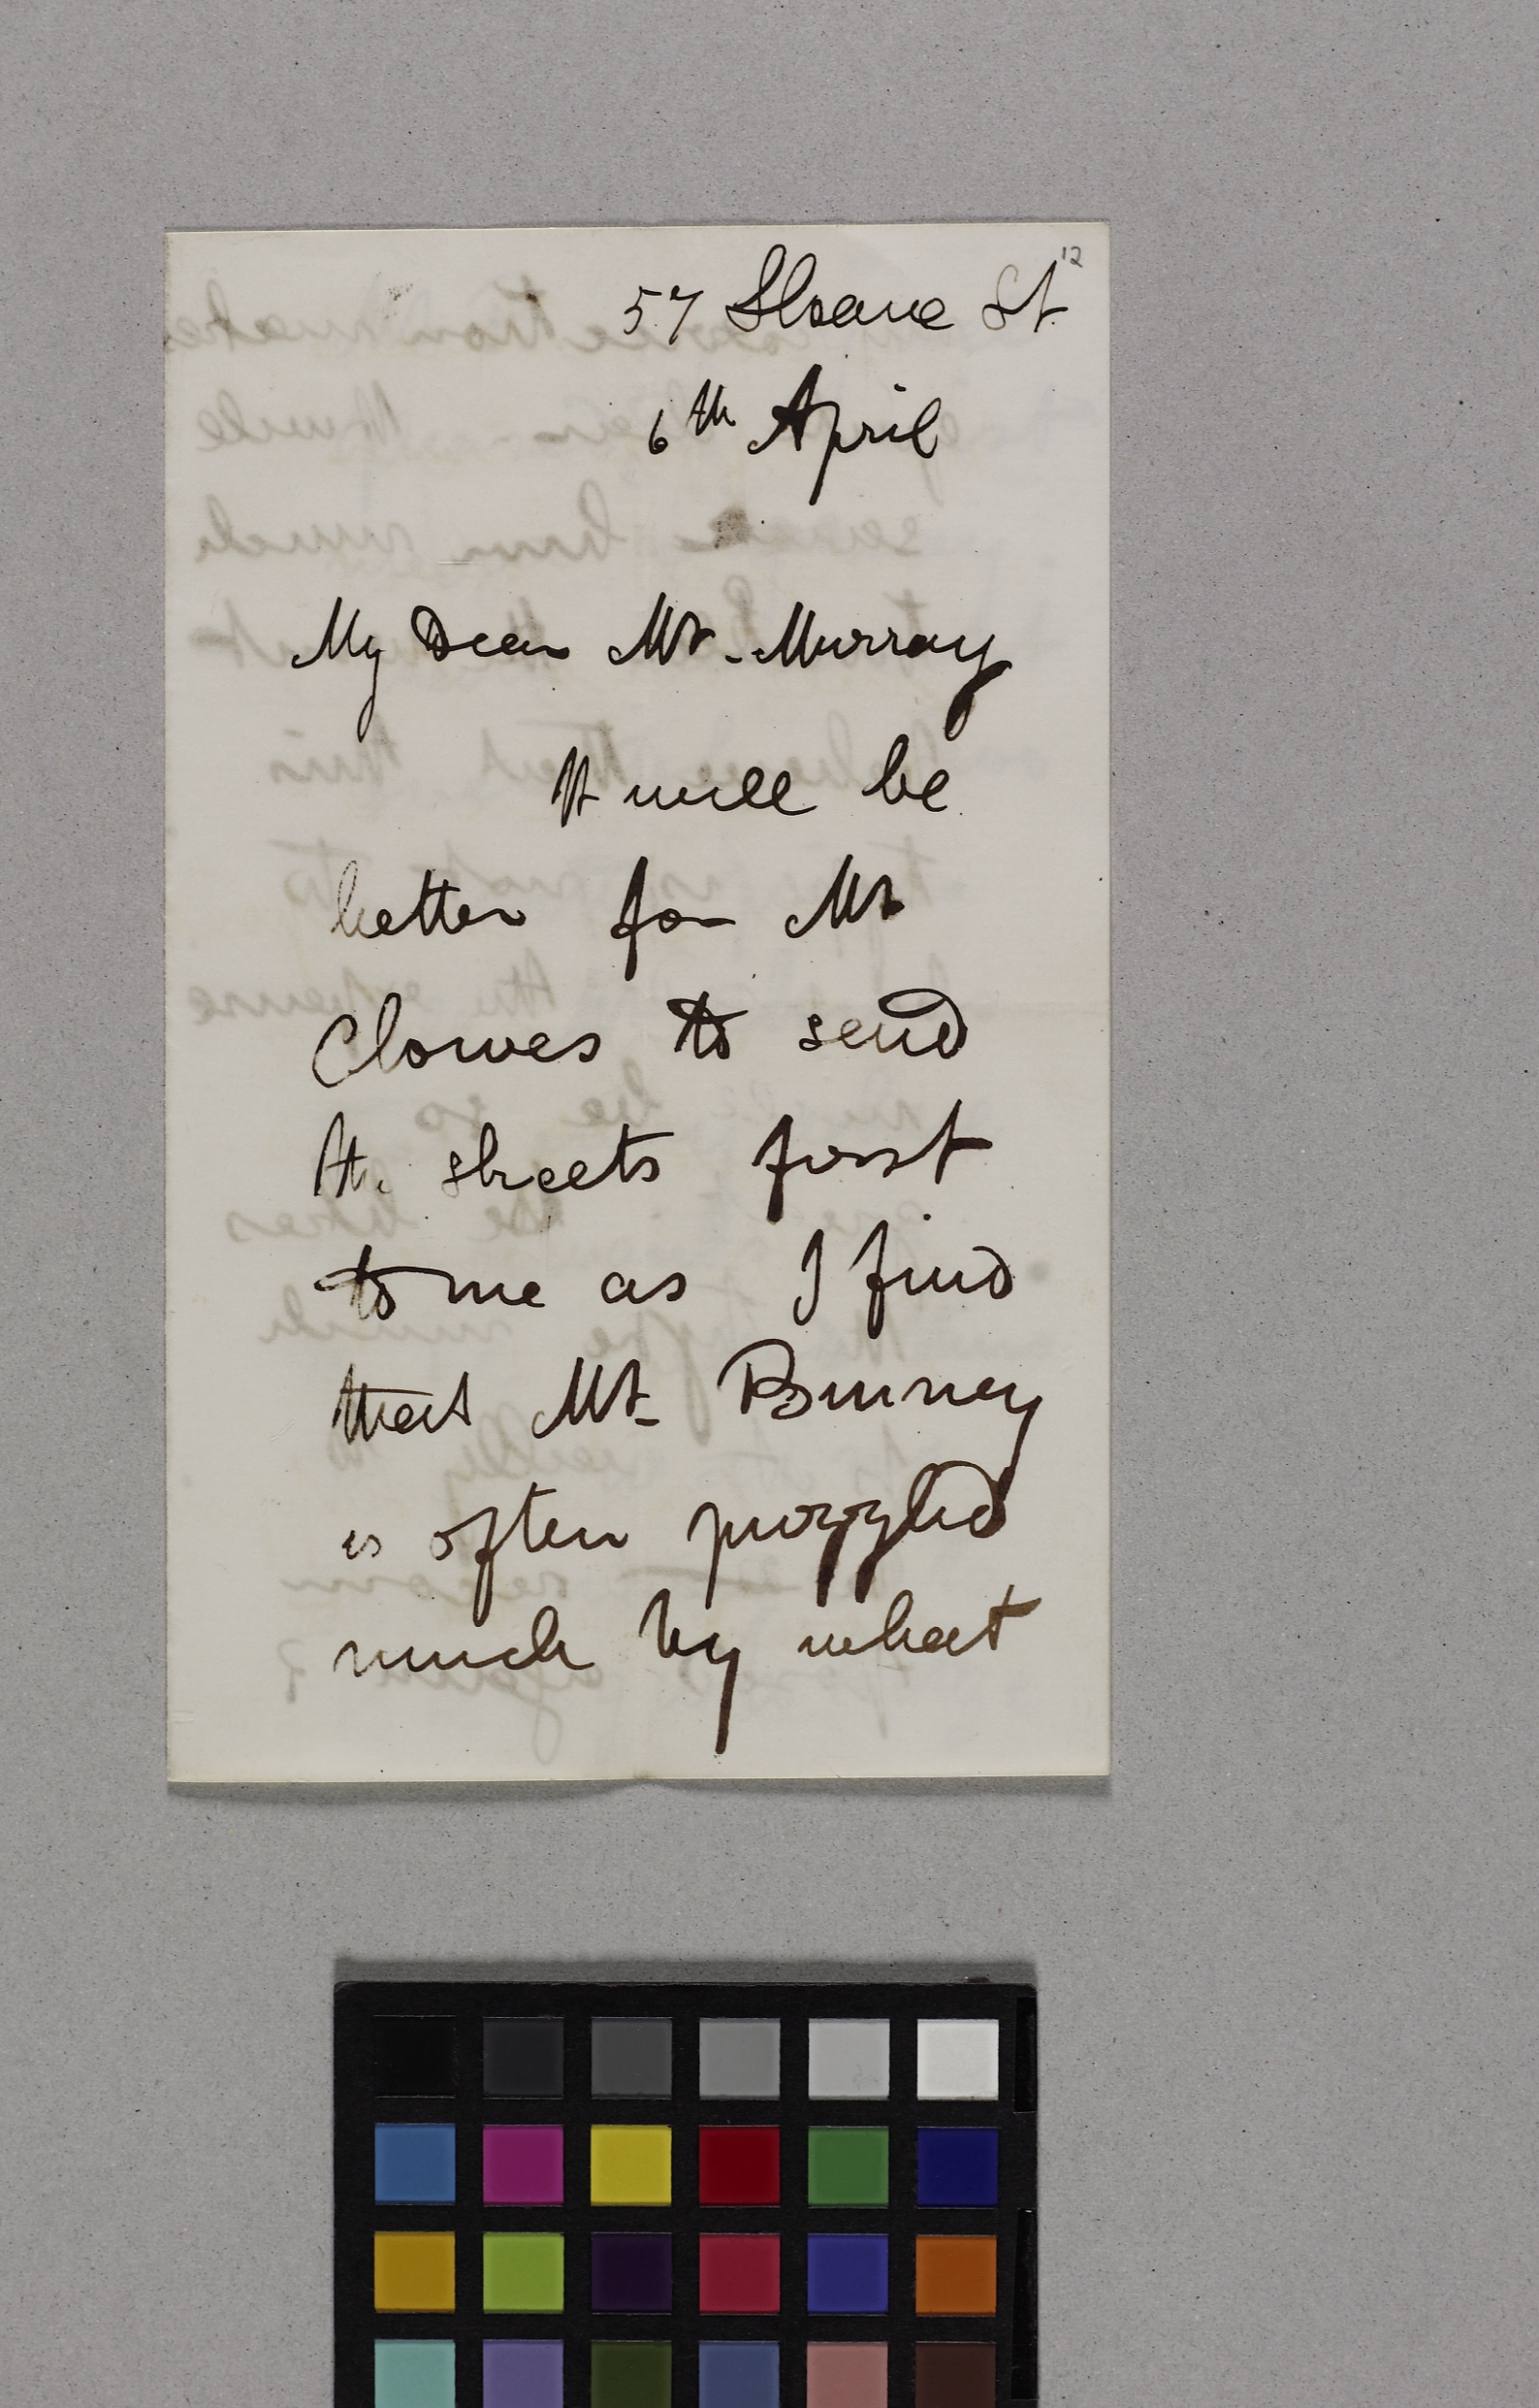 12
57 Sloane St.
6th April
My Dear Mr. Murray
It will be
better for Mr
Clowes to send
the sheets first
to me as I find
that Mr. Binney
is often puzzled
much by what